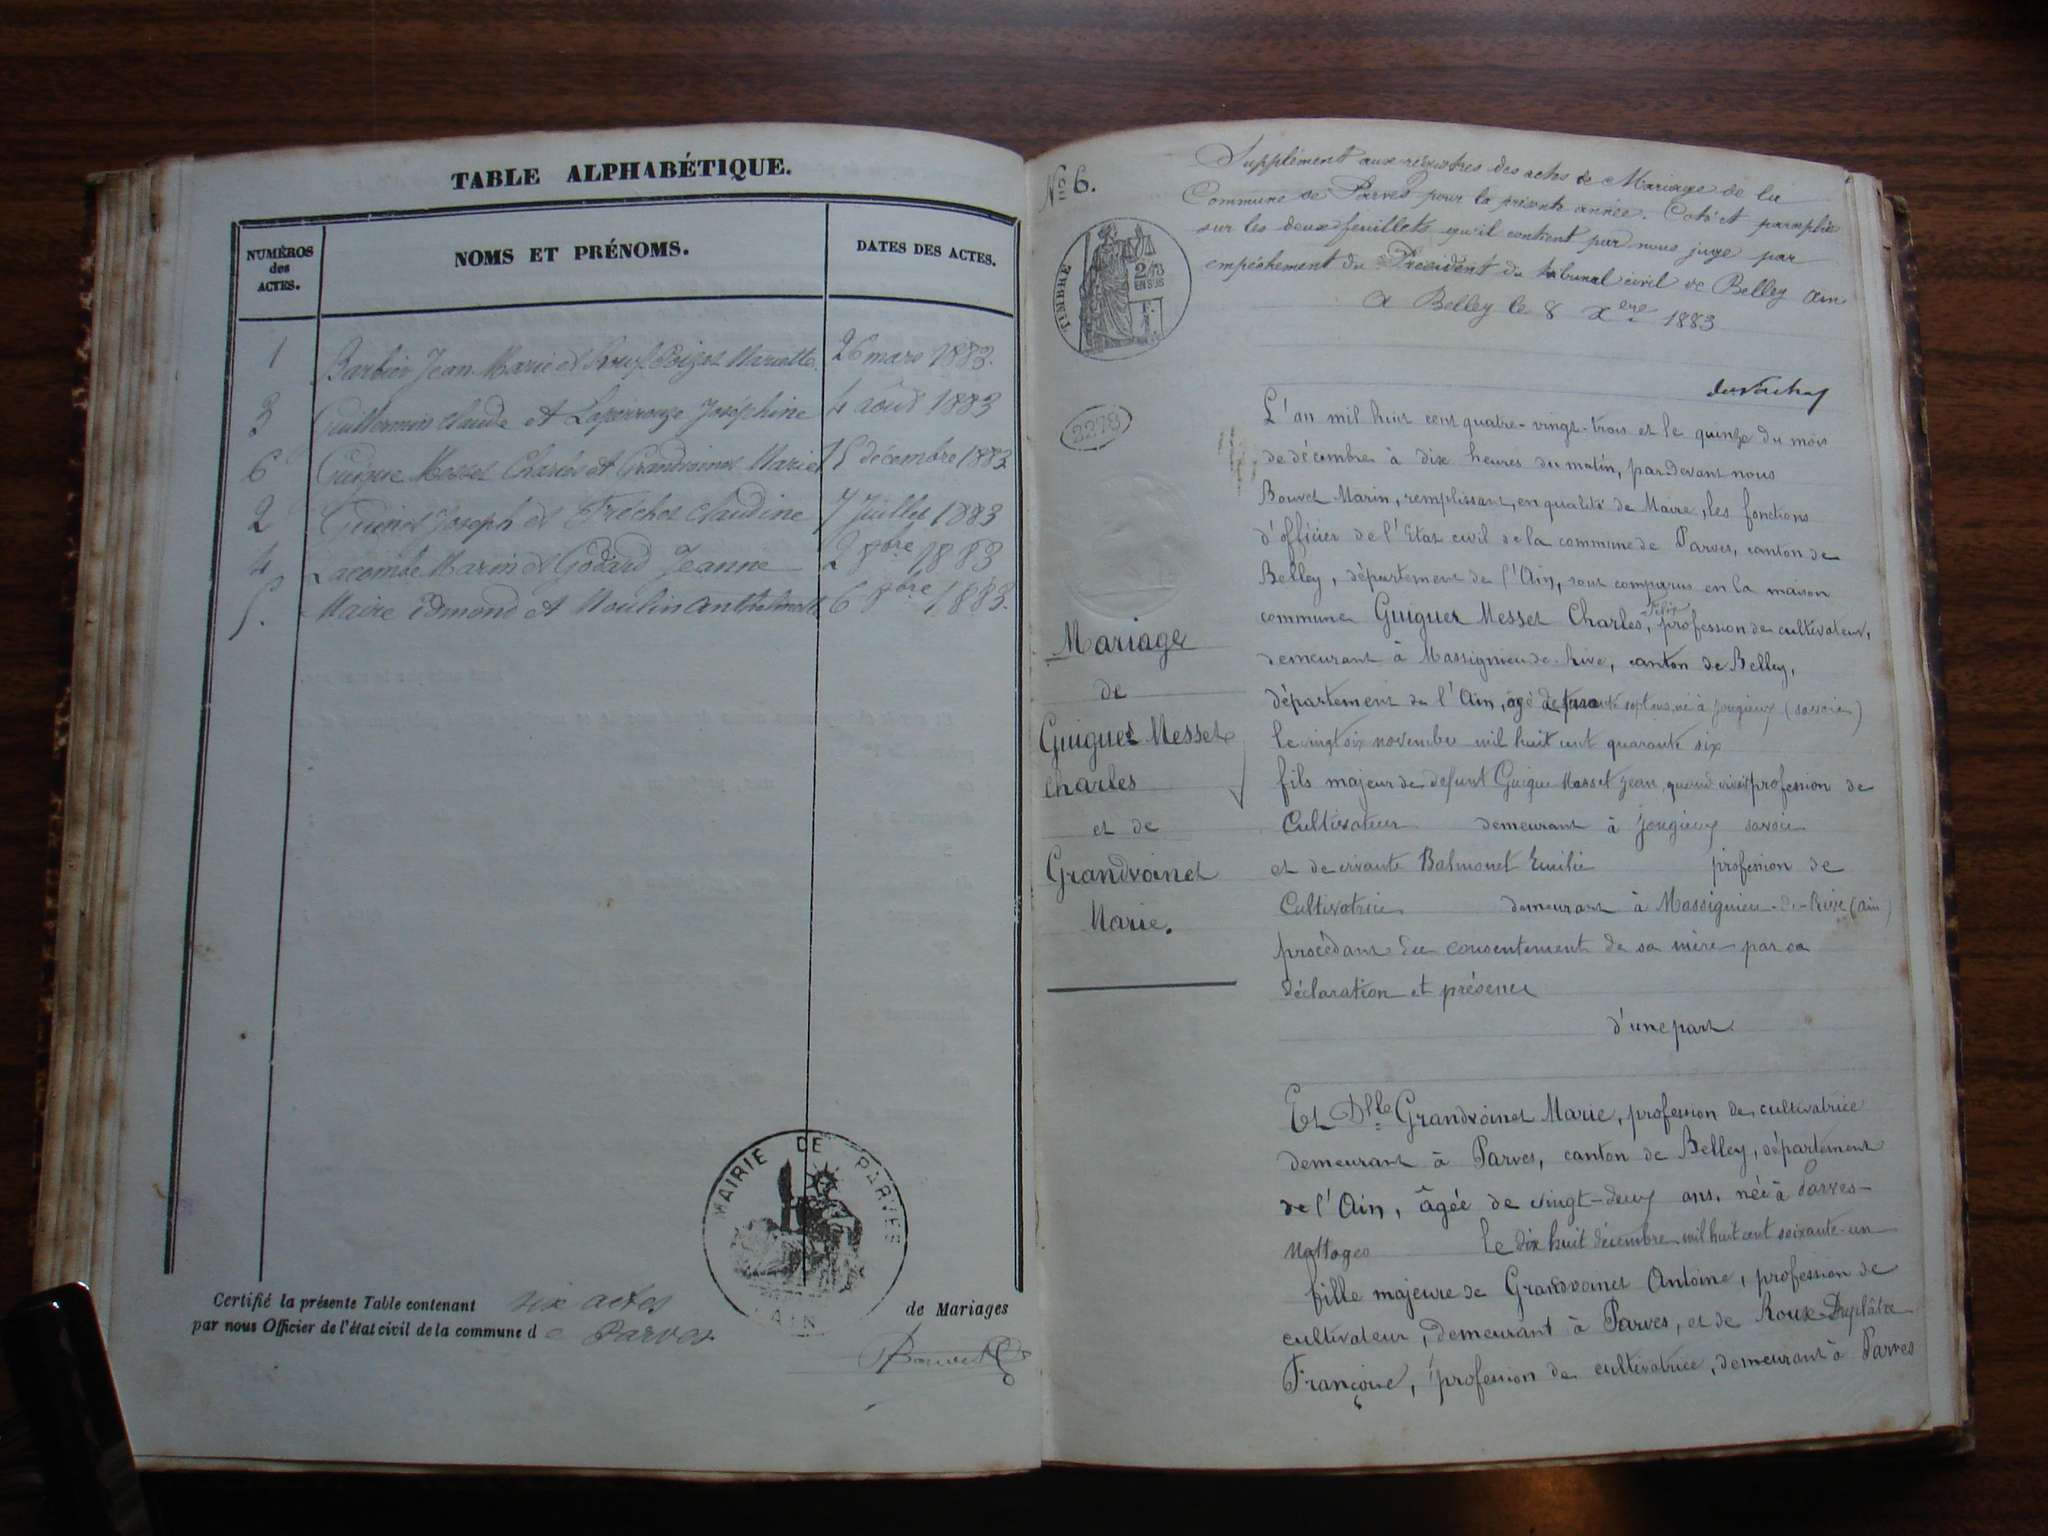 TABLE ALPHABÉTIQUE.
NUMÉROS des ACTES.
NOMS ET PRÉNOMS.
DATES DES ACTES.
1 Barbier Jean Marie et Mariette 26 mars 1883.
3 Guillermin Claude et Laperrouze Joséphine 4 août 1883
6 Guigue Messet Charles et Grandvoinet Marie 15 décembre 1883
2 Guinet Joseph et Fréchet Claudine 7 Juillet 1883
4 Lacombe Marin et Godard Jeanne 2 8bre 1883
5. Maire Edmond et Moulin Anthelmette 6 8bre 1883.
MAIRIE DE PARVES
AIN
Certifié la présente Table contenant six actes de Mariages
par nous Officier de l'état civil de la commune de Parves
Bouvet
No 6.
Supplément aux registres des actes de Mariage de la
Commune de Parves pour la présente année. Coté et paraphé
sur les deux feuillets qu'il contient par nous juge par
empêchement du Président du tribunal civil de Belley Ain
A Belley le 8 Xbre 1883
TIMBRE
2/10 EN SUS
2278
L'an mil huit cent quatre-vingt-trois et le quinze du mois
de décembre à dix heures du matin, par devant nous
Bouvet Marin, remplissant en qualité de Maire, les fonctions
d'officier de l'Etat civil de la commune de Parves, canton de
Belley, département de l'Ain, sont comparus en la maison
commune Guiguet Messet Charles, Félix, profession de cultivateur,
demeurant à Massignieu-de-Rive, canton de Belley,
département de l'Ain, âgé de trente sept ans, né à Jongieux (Savoie)
le vingt six novembre mil huit cent quarante six
fils majeur de défunt Guigue Messet Jean, quand vivait profession de
Cultivateur demeurant à Jongieux Savoie
et de vivante Balmonet Emilie profession de
Cultivatrice demeurant à Massignieu-de-Rive (Ain)
procédant du consentement de sa mère par sa
déclaration et présence
d'une part.
Mariage
de
Guiguet Messet
Charles
et de
Grandvoinet
Marie.
Et Dlle Grandvoinet Marie, profession de cultivatrice
demeurant à Parves, canton de Belley, département
de l'Ain, âgée de vingt-deux ans, née à Parves-
Nattages le dix huit décembre mil huit cent soixante-un
fille majeure de Grandvoinet Antoine, profession de
cultivateur, demeurant à Parves, et de Roux Duplâtre
Françoise, profession de cultivatrice, demeurant à Parves